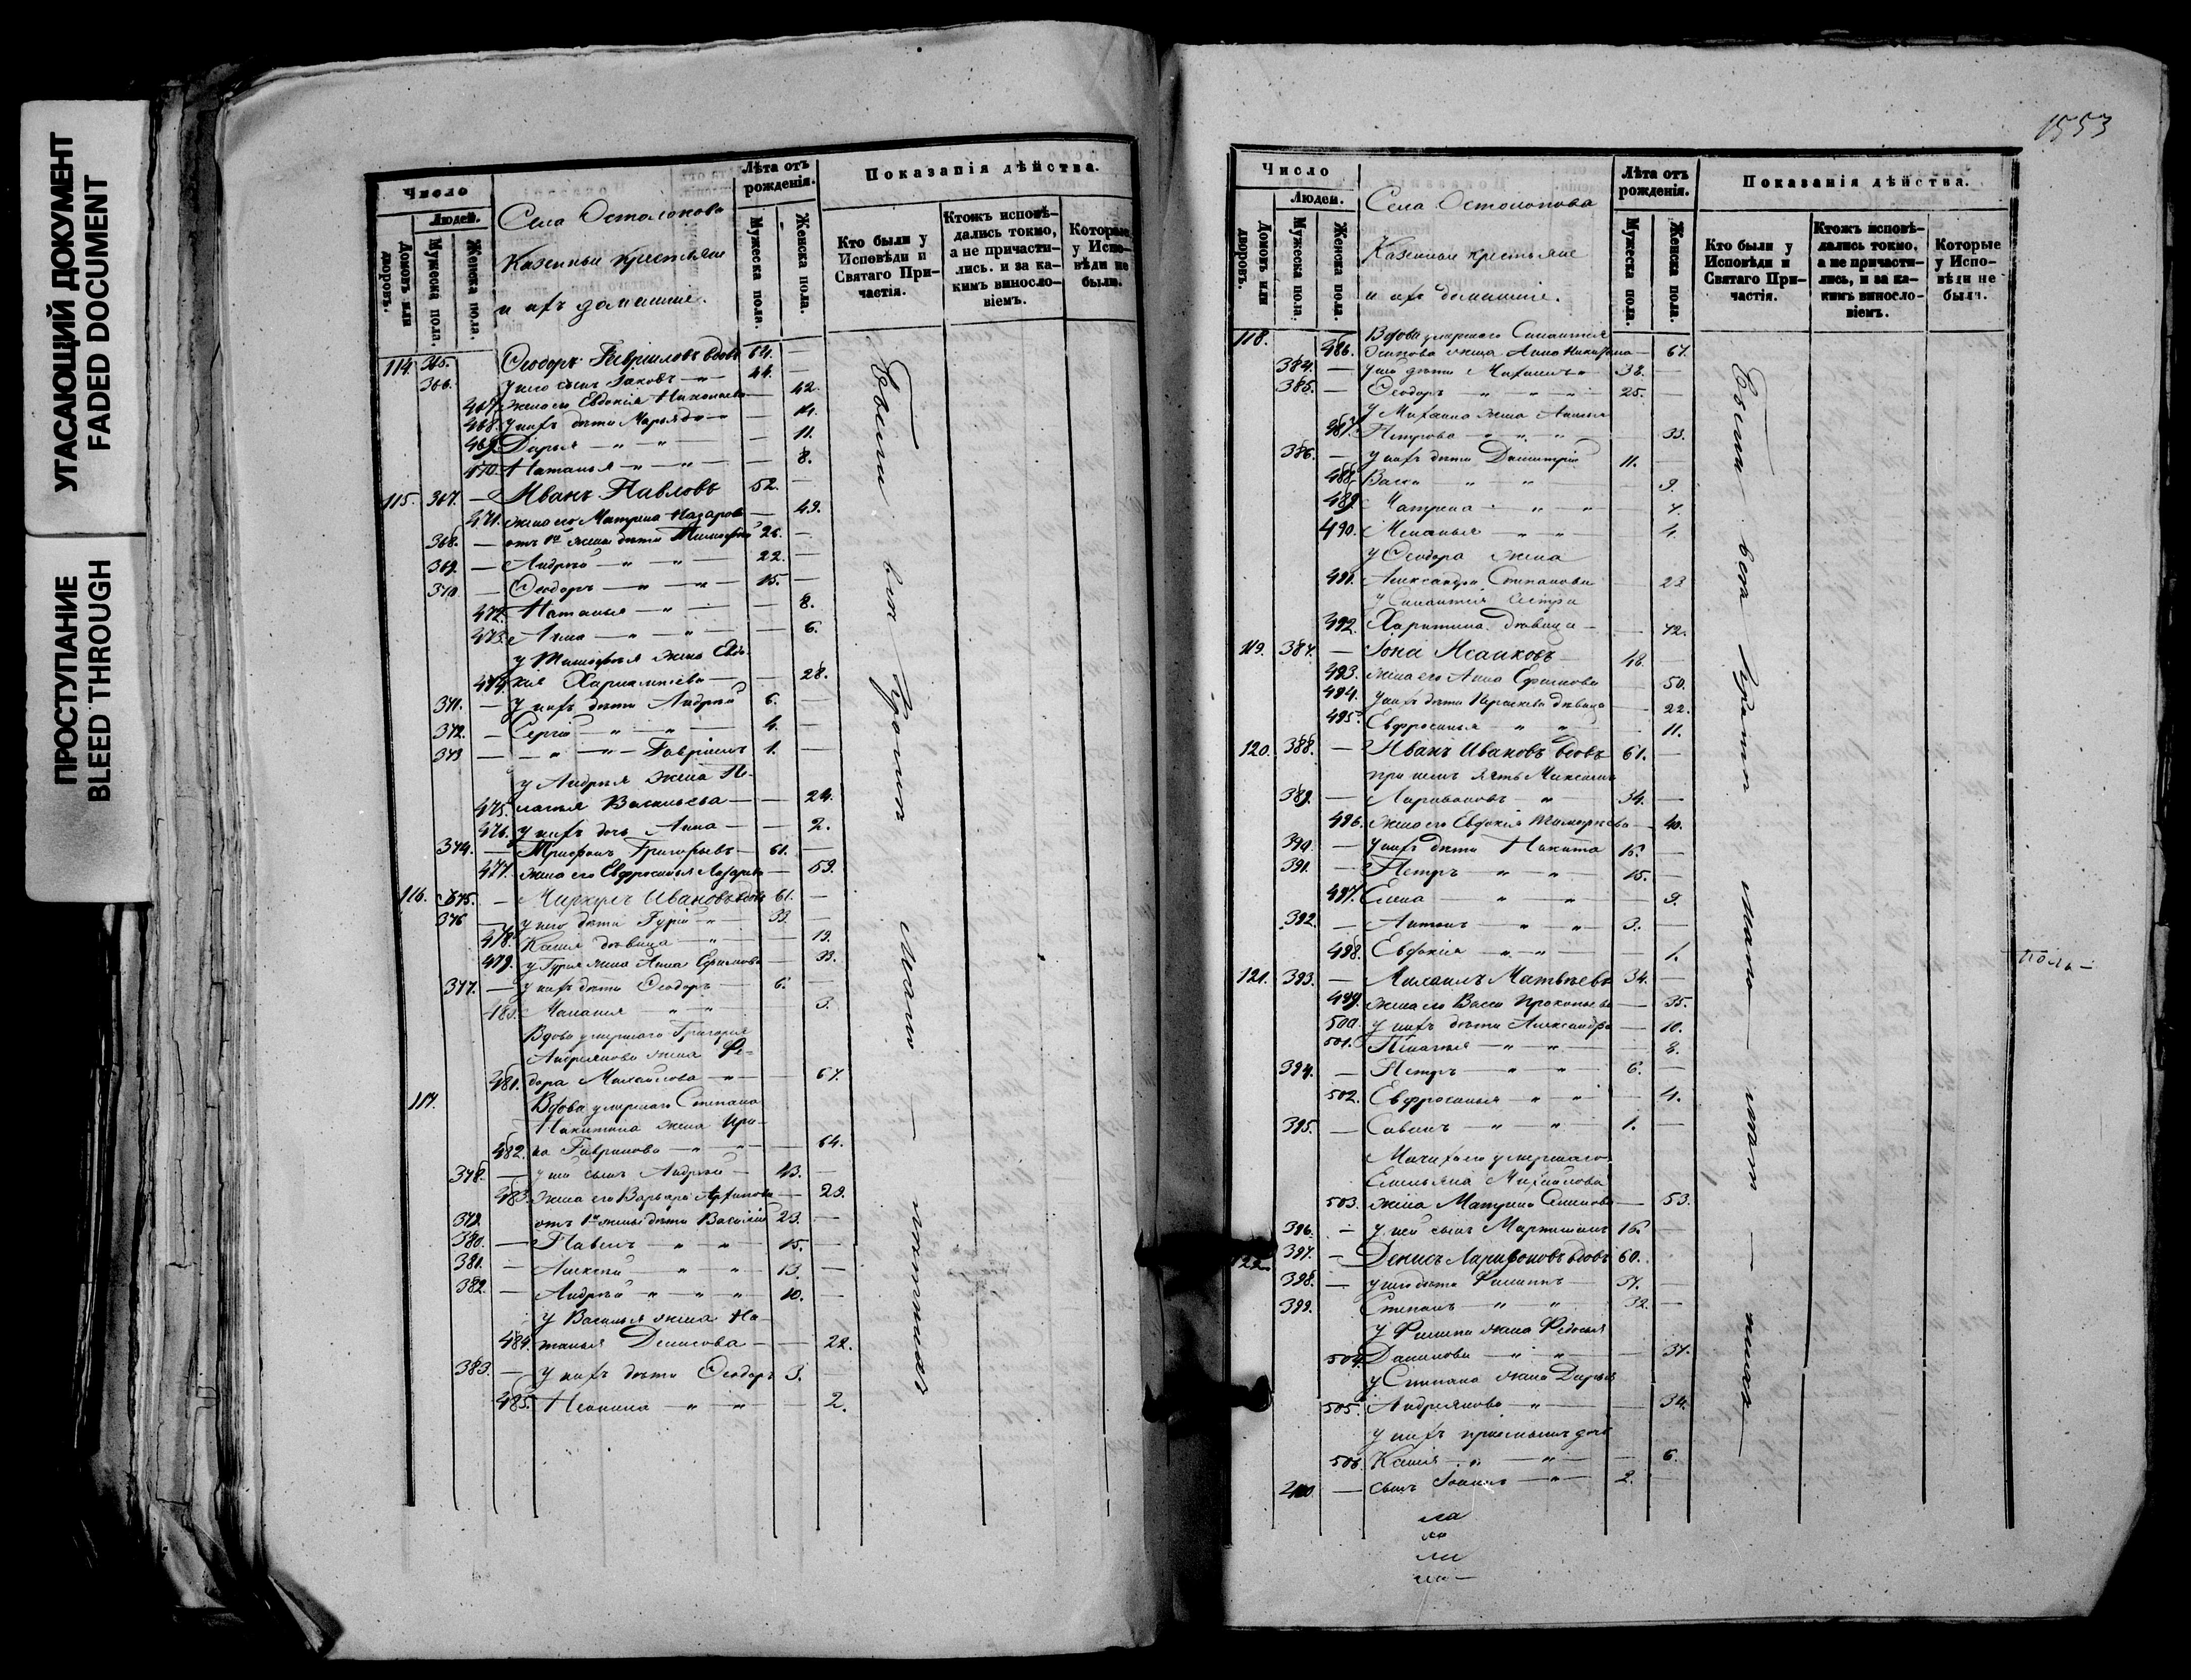 УГАСАЮЩИЙ ДОКУМЕНТ
FADED DOCUMENT
ПРОСТУПАНИЕ
BLEED THROUGH
Число
Людей.
Домовъ или дворовъ.
Мужеска пола.
Женска пола.
Села Остолопова
Казенные крестьяне
и ихъ домашніе.
Лѣта отъ рожденія.
Мужеска пола.
Женска пола.
Показанія дѣйства.
Кто были у Исповѣди и Святаго Причастія.
Ктожъ исповѣдались токмо, а не причастились. и за какимъ винословіемъ.
Которые у Исповѣди не были.
114. 365. Ѳеодоръ Гавріиловъ вдовъ 64. —
366. у него сынъ Іаковъ — 44. —
467. жена его Евдокія — 42.
468. у нихъ дѣти Марья — 14.
469. Дарья — „ — „ — 11.
470. Наталья — „ — „ — 8.
115. 367. — Иванъ Павловъ 52. —
471. жена его Матрена Назарова — 49.
368. — отъ 1й жены дѣти Тимофей 26. —
369. — Андрей — „ — „ — 22. —
370. — Ѳеодоръ — „ — „ — 15. —
472. Наталья — „ — 8.
473. Анна — „ — „ — 6.
у Тимофея жена Евдо-
474. кія Харлампіева — 28.
371. — у нихъ дѣти Андрей 6. —
372. — Сергій — „ — „ — 4. —
373 — „ — „ — Гавріилъ 1. —
у Андрея жена Пе-
475. лагея Васильева — — 24.
476. у нихъ дочь Анна — — 2.
374. — Трифонъ Григорьевъ — 61. —
477. жена его Евфросинья — 59.
116. 375. — Меркулъ Ивановъ вдовъ 61. —
376 — у него дѣти Гурій — „ — 33. —
478. Ксенія дѣвица — „ — 19.
479. у Гурія жена Анна Ефимова — 33.
377. — у нихъ дѣти Ѳеодоръ — 6. —
480. Меланія — „ — „ — 3.
Вдова умершаго Григорія
Андреянова жена Ѳе-
481. дора Михайлова — „ — 67.
117. Вдова умершаго Степана
Никитина жена Ири-
482. на Гаврилова — „ — „ — 64.
378. — у ней сынъ Андрей — 43. —
483. жена его Варвара Архипова — 29.
379. отъ 1й жены дѣти Василій 23. —
380. — Павелъ — „ — „ — 15. —
381. — Алексѣй — „ — „ — 13. —
382. — Андрей — „ — „ — 10. —
у Василья жена На-
484. талья Денисова — — 22.
383. — у нихъ дѣти Ѳеодоръ 3. —
485. Неонила — „ — „ — 2.
1553
Число
Людей.
Домовъ или дворовъ.
Мужеска пола.
Женска пола.
Села Остолопова
Казенные крестьяне
и ихъ домашніе.
Лѣта отъ рожденія.
Мужеска пола.
Женска пола.
Показанія дѣйства.
Кто были у Исповѣди и Святаго Причастія.
Ктожъ исповѣдались токмо, а не причастились, и за какимъ винословіемъ.
Которые у Исповѣди не были.
118. Вдова умершаго
486. Осипова жена Анна — 67.
384. — у ней дѣти Михаилъ 38. —
385. — Ѳеодоръ — „ — „ — 25. —
у Михаила жена
487. Петрова — „ — „ — 33.
386. — у нихъ дѣти Димитрій 11. —
488. Васса „ — „ — 9.
489. Матрена „ — „ — 7.
490. Меланья — „ — „ — 4.
у Ѳеодора жена
491. Александра Степанова 23
сестра
492. Харитина дѣвица — 72.
119. 387. — Іона Исааковъ 48. —
493. жена его Анна Ефимова — 50.
494. у нихъ дѣти Параскева дѣвица — 22.
495. Евфросинья „ „ 11.
120. 388. — Иванъ Ивановъ вдовъ 61. —
при немъ зять Максимъ
389. — Ларивоновъ — „ — 34. —
496. жена его Евдокія Тимофеева — 40.
390. — у нихъ дѣти Никита 16. —
391. — Петръ — „ — „ — 15. —
497. Елена — „ — „ — 9.
392. — Антонъ — „ — „ — 3. —
498. Евдокія — „ — „ — 1.
121. 393. — Михаилъ Матвѣевъ 34. —
499. жена его Васса Прокопьева — 35.
500. у нихъ дѣти Александра — 10.
501. Пелагея — „ — „ — 8.
394. — Петръ — „ — „ — 6. —
502. Евфросинья — „ — „ — 4.
395. — Савинъ — „ — „ — 1. —
Мачиха его умершаго
Емельяна Михайлова
503. жена Матрена — 53.
396. — у ней сынъ 16. —
122. 397. — Денисъ Ларивоновъ вдовъ 60. —
398. — у него дѣти Филиппъ — 37. —
399. Степанъ — „ — „ — 32. —
у Филиппа жена Ѳедосья
504. Данилова — „ — „ — 37.
у Степана жена Дарья
505. Андреянова — „ — 34.
у нихъ пріемышъ дочь
506. Ксенія — „ — „ — 6.
400. — сынъ Іоаннъ — „ — 2. —